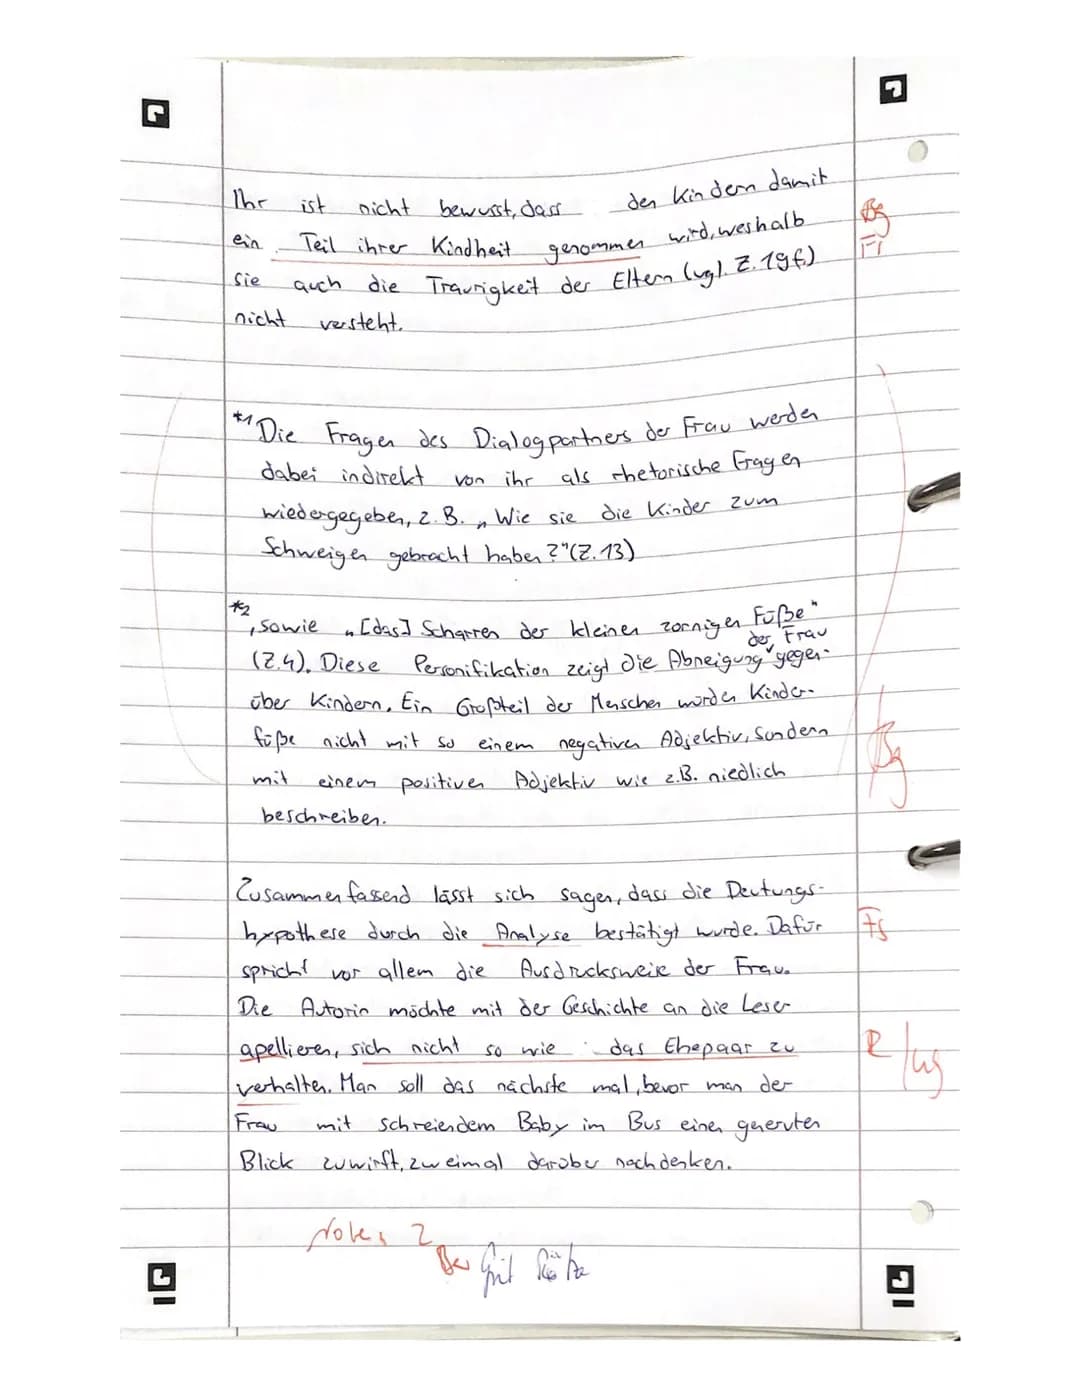 Ihr ist nicht bewusst, dass den Kindern damit
ein Teil ihrer Kindheit genommen wird, weshalb
sie auch die Traurigkeit der Eltern (vgl. Z. 19f.)
nicht versteht.
*1 Die Fragen des Dialogpartners der Frau werden
dabei indirekt von ihr als rhetorische Fragen
wiedergegeben, z.B. „Wie sie die Kinder zum
Schweigen gebracht haben?" (Z. 13)
*2
, sowie „[das] Scharren der kleinen zornigen Füße"
der Frau
(Z.4). Diese Personifikation zeigt die Abneigung gegen-
über Kindern. Ein Großteil der Menschen würden Kinder-
füße nicht mit so einem negativen Adjektiv, sondern
mit einem positiven Adjektiv wie z.B. niedlich
beschreiben.
Zusammenfassend lässt sich sagen, dass die Deutungs-
hypothese durch die Analyse bestätigt wurde. Dafür
spricht vor allem die Ausdrucksweise der Frau.
Die Autorin möchte mit der Geschichte an die Leser
apellieren, sich nicht so wie das Ehepaar zu
R
verhalten. Man soll das nächste mal, bevor man der
Frau mit schreiendem Baby im Bus einen genervten
Blick zuwirft, zweimal darüber nachdenken.
2